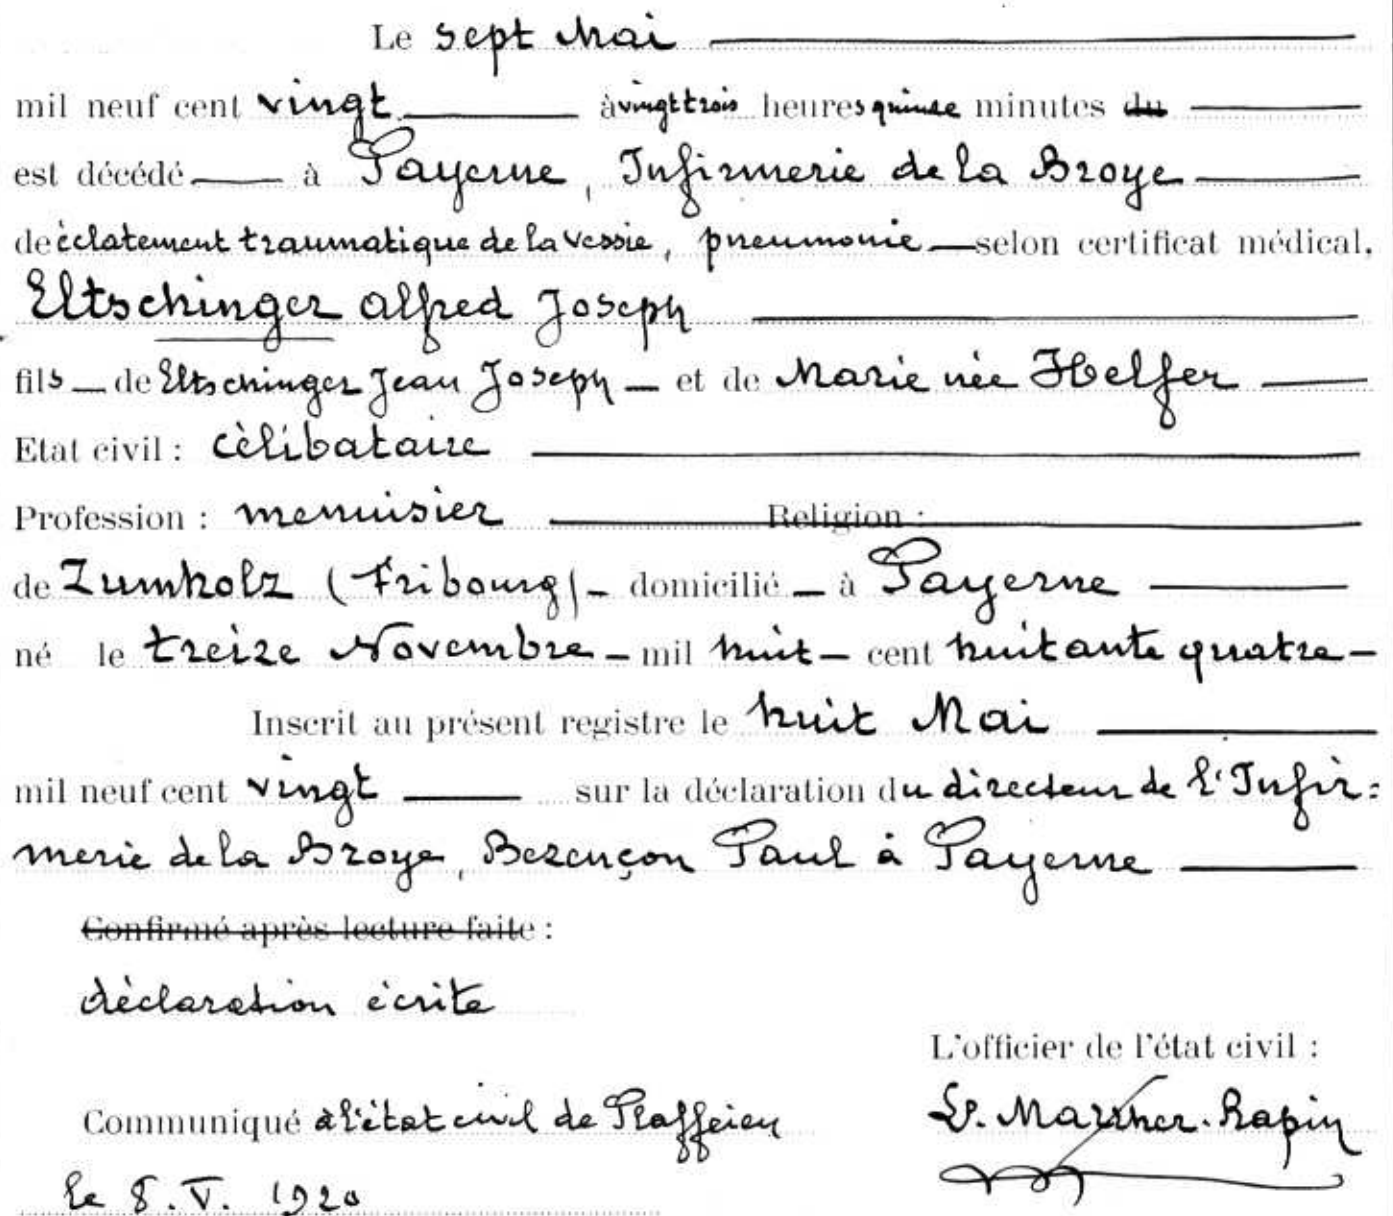 Le sept Mai
mil neuf cent vingt à vingt trois heures quinze minutes du
est décédé à Payerne, Infirmerie de la Broye
de èclatement traumatique de la vessie, pneumonie selon certificat médical,
Eltschinger Alfred Joseph
fils de Eltschinger Jean Joseph et de Marie née Helfer
Etat civil : cèlibataire
Profession : menuisier Religion :
de Zumholz (Fribourg) domicilié à Payerne
né le treize Novembre mil huit cent huitante quatre
Inscrit au présent registre le huit Mai
mil neuf cent vingt sur la déclaration du directeur de l'Infir:
merie de la Broye, Bezençon Paul à Payerne
Confirmé après lecture faite :
dèclaration écrite
L'officier de l'état civil :
Communiqué à l'état civil de Plaffeien
Rapin
le 8. V. 1920